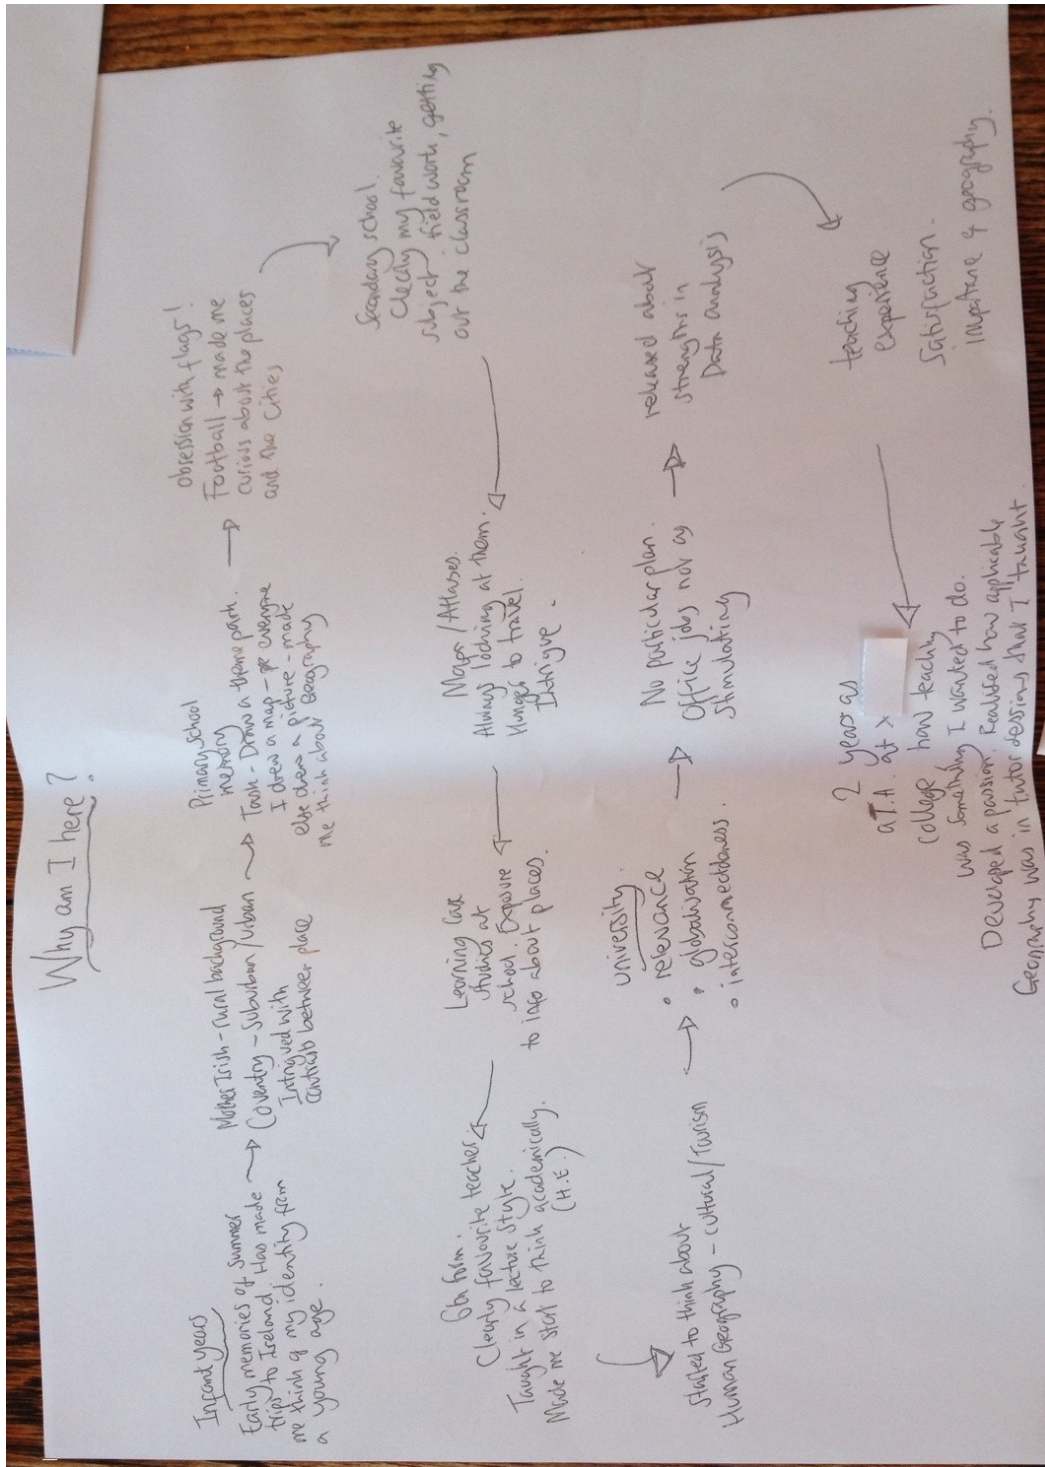 Why am I here?
Infant years
Early memories of Summer
trips to Ireland. Has made
me think of my identity from
a young age.
Mother Irish - rural background
Coventry - Suburban/urban
Intrigued with
contrasts between place
Primary School
memory
Task - Draw a theme park.
I drew a map - everyone
else drew a picture - made
me think about Geography
obsession with flags!
Football → made me
curious about the places
and the cities
Secondary school.
Clearly my favourite
subject field work, getting
out the classroom
Maps/Atlases.
Always looking at them.
Hunger to travel.
Intrigue.
Learning Case
studies at
school. Exposure
to info about places.
6th form.
Clearly favourite teacher
Taught in a lecture style.
Made me start to think academically.
(H.E.)
started to think about
Human Geography - cultural/Tourism
university.
• relevance
• globalisation
• interconnectedness.
No particular plan.
Office jobs not as
stimulating
released about
strengths in
Data analysis
teaching
experience
Satisfaction.
importane 4 geography.
2 years as
a T.A. at x
college how teachig
was something I wanted to do.
Developed a passion. Realised how applicable
Geography was in tutor sessions that I taught.